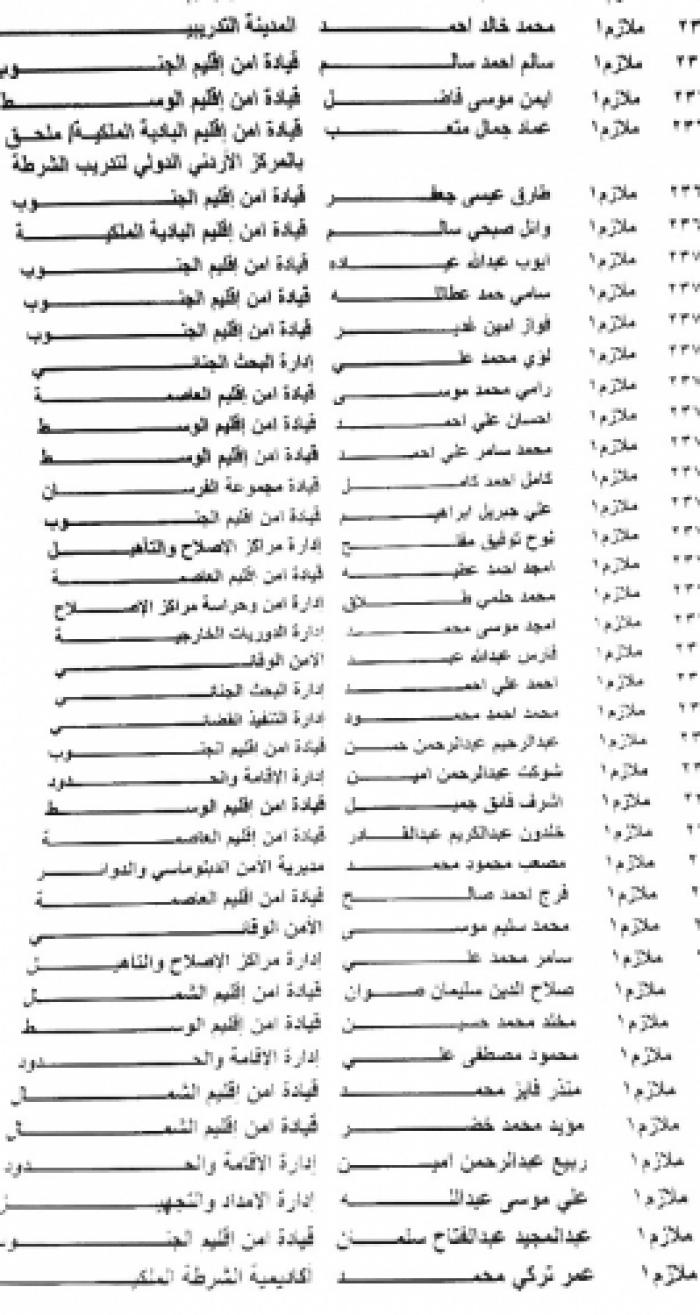 ٢٣ ملازم١ محمد خالد احمـــد المدينة التدريبيـــ
٢٣ ملازم١ سالم احمد سالـــم قيادة امن إقليم الجنـــوب
٢٣ ملازم١ ايمن موسى فاضـــل قيادة امن إقليم الوســـط
٢٣ ملازم١ عماد جمال متعـــب قيادة امن إقليم البادية الملكيـــة/ ملحـــق
بالمركز الأردني الدولي لتدريب الشرطة
٢٣٦ ملازم١ طارق عيسى جعفـــر قيادة امن إقليم الجنـــوب
٢٣٦ ملازم١ وائل صبحي سالـــم قيادة امن إقليم البادية الملكيـــة
٢٣٧ ملازم١ ايوب عبدالله عيـــاده قيادة امن إقليم الجنـــوب
٢٣٧ ملازم١ سامي حمد عطاللـــه قيادة امن إقليم الجنـــوب
٢٣٧ ملازم١ فواز امين غديـــر قيادة امن إقليم الجنـــوب
٢٣٧ ملازم١ لؤي محمد علـــي إدارة البحث الجنائـــي
٢٣٧ ملازم١ رامي محمد موســـى قيادة امن إقليم العاصمـــة
٢٣٧ ملازم١ احسان علي احمـــد قيادة امن إقليم الوســـط
٢٣٧ ملازم١ محمد سامر علي احمـــد قيادة امن إقليم الوســـط
٢٣٧ ملازم١ كامل احمد كامـــل قيادة مجموعة الفرســـان
٢٣٧ ملازم١ علي جبريل ابراهيـــم قيادة امن اقليم الجنـــوب
٢٣٧ ملازم١ نوح توفيق مفلـــح إدارة مراكز الاصلاح والتأهيـــل
٢٣ ملازم١ امجد احمد عطيـــه قيادة امن إقليم العاصمـــة
٢٣ ملازم١ محمد حلمي طـــلاق إدارة امن وحراسة مراكز الإصـــلاح
٢٣ ملازم١ امجد موسى محمـــد إدارة الدوريات الخارجيـــة
٢٣ ملازم١ فارس عبدالله عيـــد الامن الوقائـــي
٢٣ ملازم١ احمد علي احمـــد إدارة البحث الجنائـــي
٢٣ ملازم١ محمد احمد محمـــود إدارة التنفيذ القضائـــي
٢٣ ملازم١ عبدالرحيم عبدالرحمن حســـن قيادة امن إقليم الجنـــوب
٢٣ ملازم١ شوكت عبدالرحمن اميـــن إدارة الاقامة والحـــدود
٢٣ ملازم١ اشرف فايق جميـــل قيادة امن إقليم الوســـط
٢ ملازم١ خلدون عبدالكريم عبدالقـــادر قيادة امن إقليم العاصمـــة
٢ ملازم١ مصعب محمود محمـــد مديرية الأمن الدبلوماسي والدوائـــر
ملازم١ فرج احمد صالـــح قيادة امن اقليم العاصمـــة
ملازم١ محمد سليم موســـى الأمن الوقائـــي
ملازم١ سامر محمد علـــي إدارة مراكز الإصلاح والتاهيـــل
ملازم١ صلاح الدين سليمان صـــوان قيادة امن إقليم الشمـــال
ملازم١ مخلد محمد حسيـــن قيادة امن إقليم الوســـط
ملازم١ محمود مصطفى علـــي إدارة الإقامة والحـــدود
ملازم١ منذر فايز محمـــد قيادة امن إقليم الشمـــال
ملازم١ مؤيد محمد خضـــر قيادة امن إقليم الشمـــال
ملازم١ ربيع عبدالرحمن اميـــن إدارة الاقامة والحـــدود
ملازم١ علي موسى عبداللـــه إدارة الامداد والتجهيـــز
ملازم١ عبدالمجيد عبدالفتاح سلمـــان قيادة امن إقليم الجنـــوب
ملازم١ عمر تركي محمـــد أكاديمية الشرطة الملكيـــ